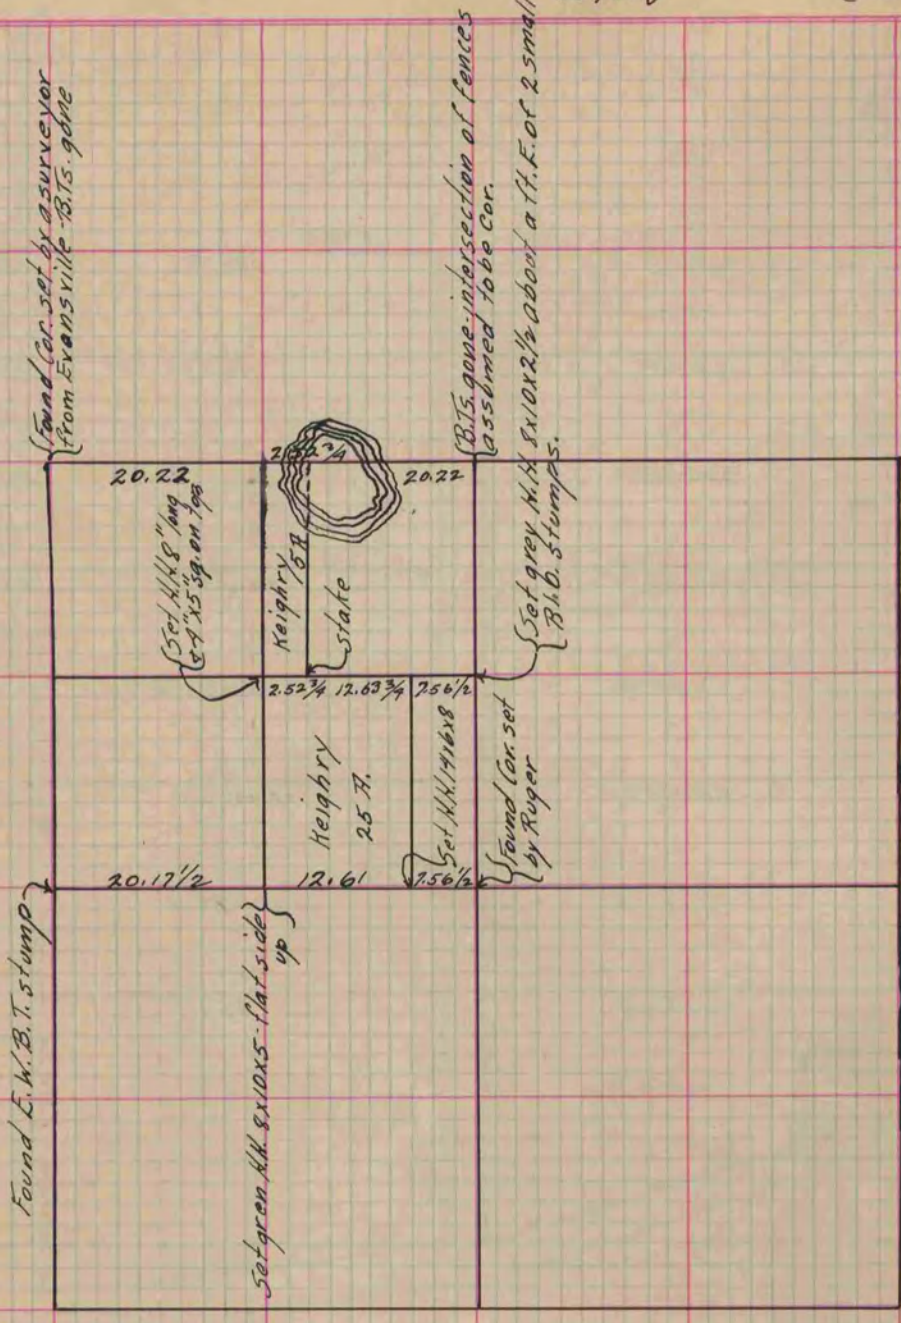 Found Cor. set by a surveyor
from Evansville - B.Ts. gone
B.Ts. gone - intersection of fences
assumed to be Cor.
20.22
2.52 3/4
20.22
Set H.H. 8" long
& 4" x 5" sq. on top
Keighry
5 A
stake
Set grey H.H. 8x10x2 1/2 about a ft. E. of 2 small
B.h.b. stumps.
2.52 3/4
12.63 3/4
7.56 1/2
Keighry
25 A.
Set H.H. 14x6x8
Found Cor. set
by Ruger
20.17 1/2
12.61
7.56 1/2
Found E.W.B.T. stump
Set green H.H. 8x10x5 - flat side
up